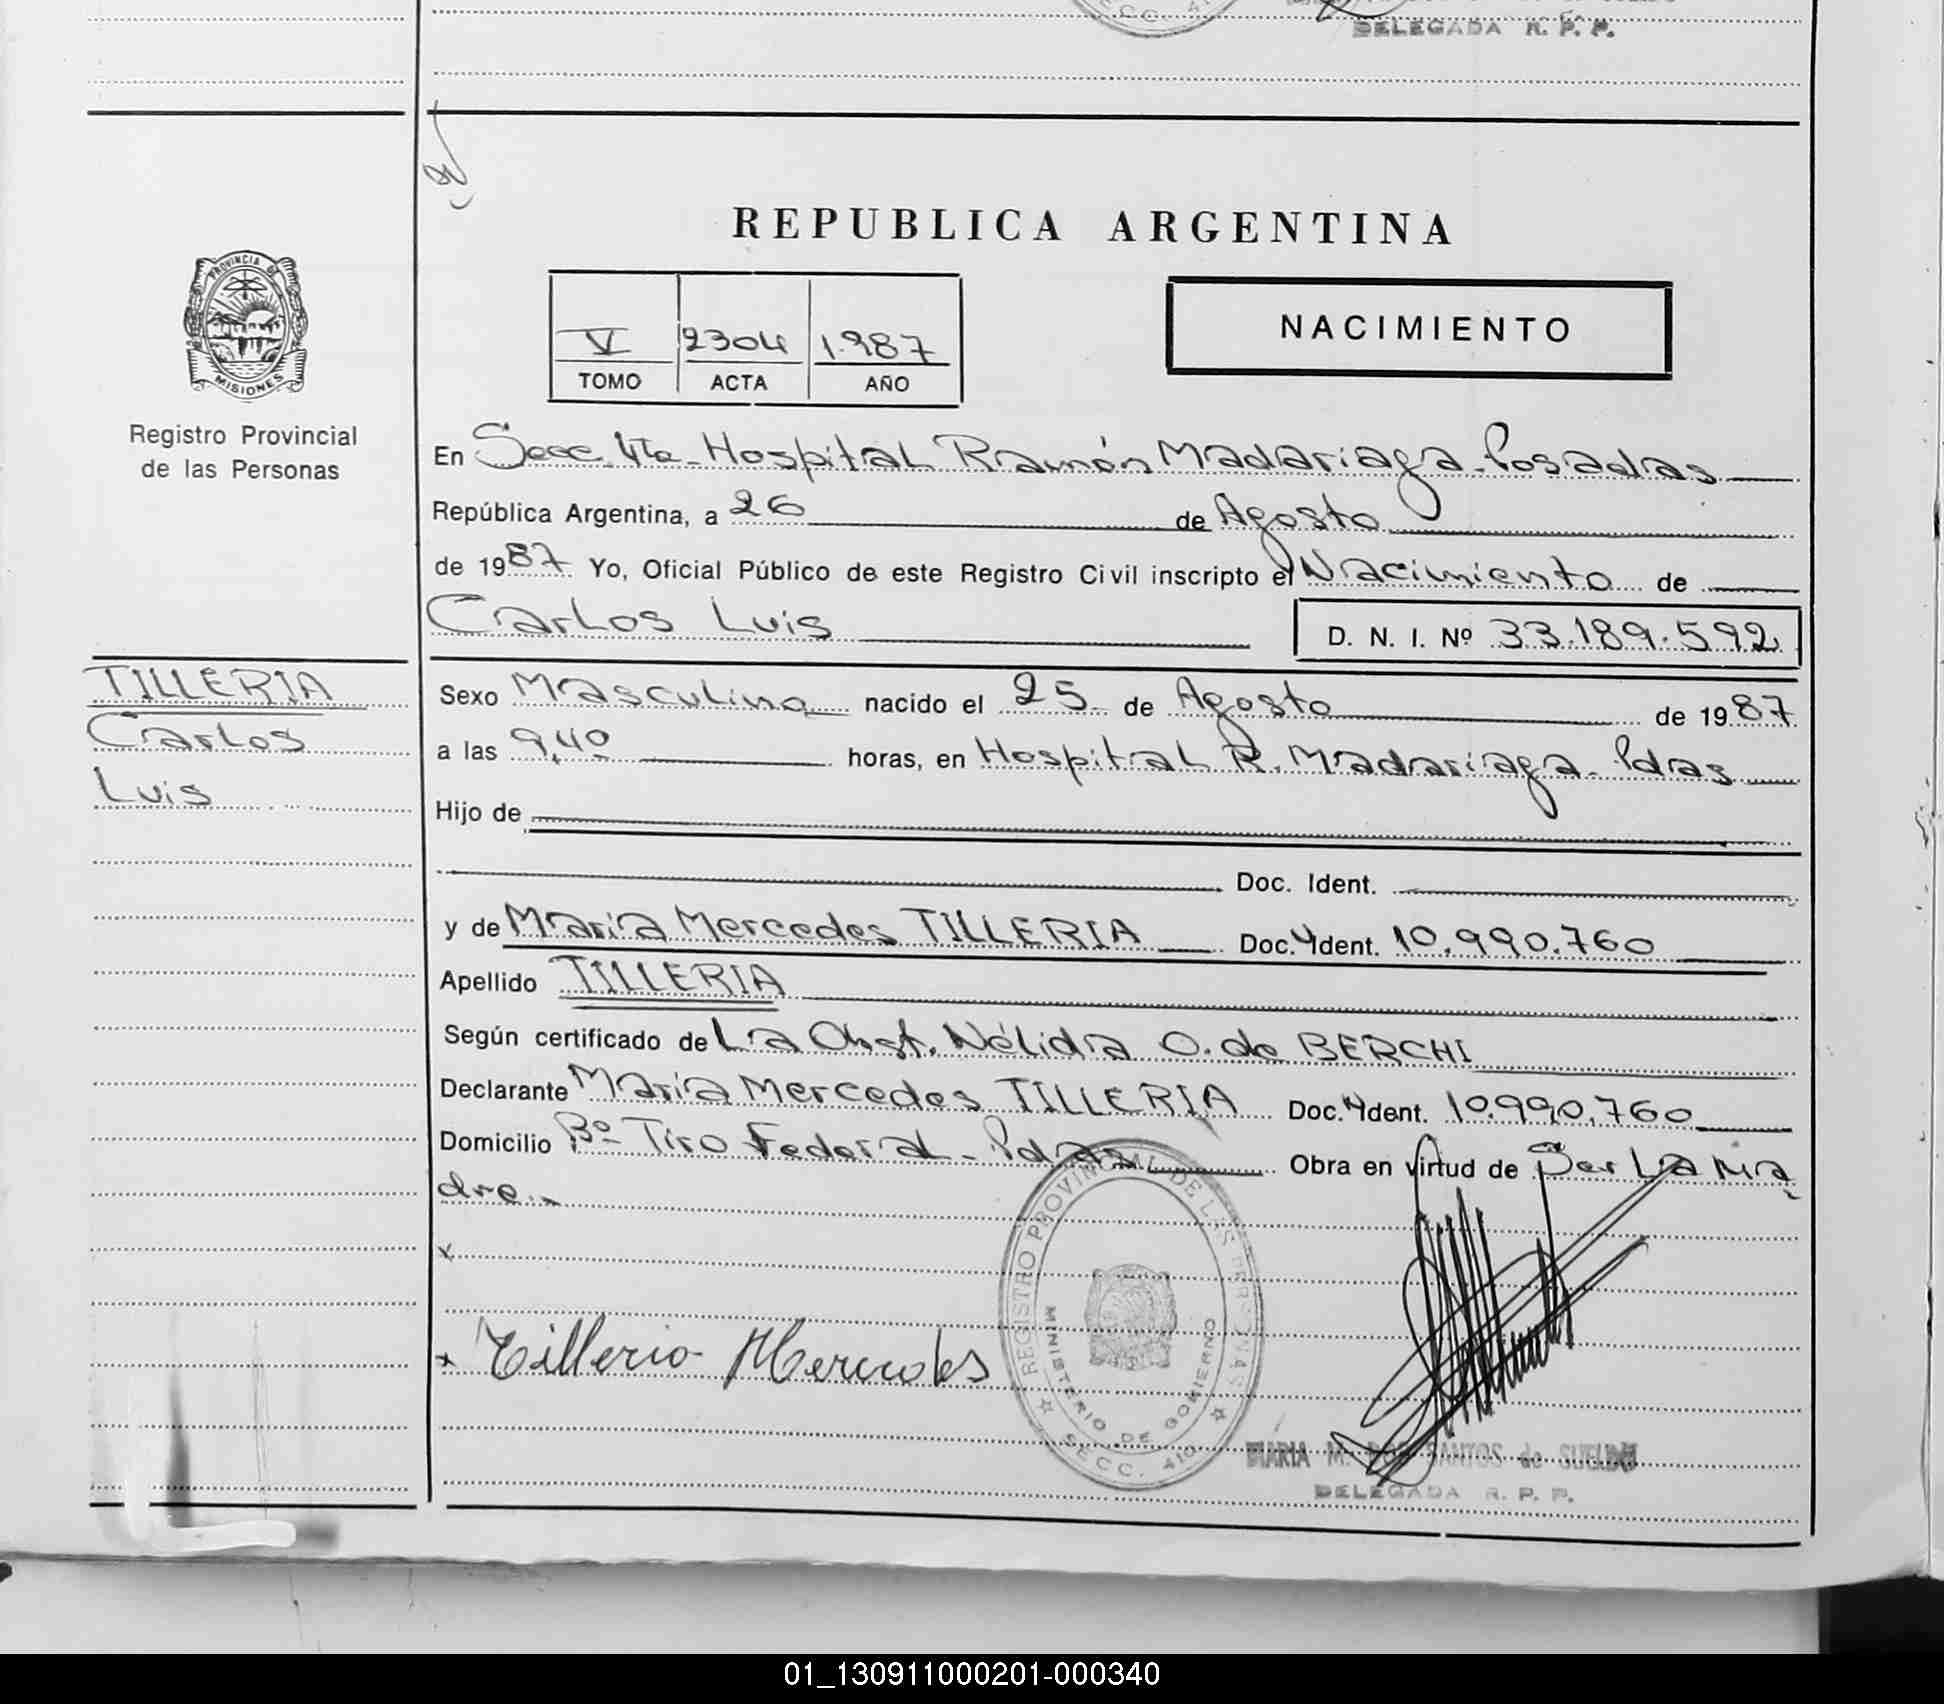 SECC. 41
DELEGADA R. P. P.
REPUBLICA ARGENTINA
PROVINCIA DE
MISIONES
Registro Provincial
de las Personas
V 2304 1.987
TOMO ACTA AÑO
NACIMIENTO
En Secc. 4ta - Hospital Ramón Madariaga - Posadas
República Argentina, a 26 de Agosto
de 1987 Yo, Oficial Público de este Registro Civil inscripto el Nacimiento de
Carlos Luis D. N. I. Nº 33.189.592
TILLERIA
Carlos
Luis
Sexo Masculino nacido el 25 de Agosto de 1987
a las 9,40 horas, en Hospital R. Madariaga - Pdas
Hijo de
Doc. Ident.
y de María Mercedes TILLERIA Doc. Ident. 10.990.760
Apellido TILLERIA
Según certificado de La Obst. Nélida O. de BERCHI
Declarante María Mercedes TILLERIA Doc. Ident. 10.990.760
Domicilio Bº Tiro Federal - Pdas Obra en virtud de Ser La Ma
dre.
x
x Tilleria Mercedes
REGISTRO PROVINCIAL DE LAS PERSONAS
MINISTERIO DE GOBIERNO
SECC. 410
MARIA M. DOS SANTOS de SUELDO
DELEGADA R. P. P.
01_130911000201-000340